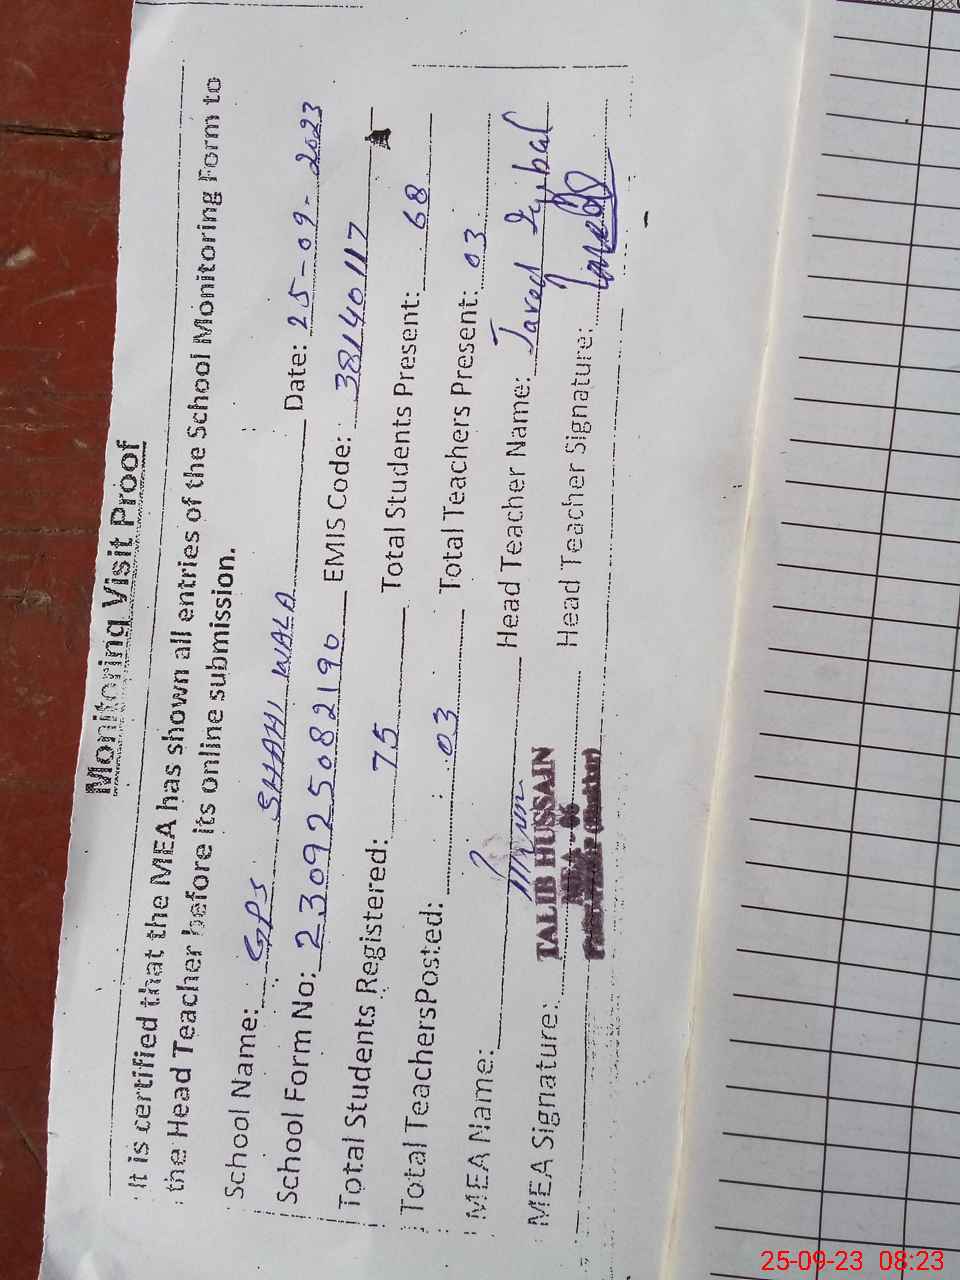 Monitoring Visit Proof
It is certified that the MEA has shown all entries of the School Monitoring Form to
the Head Teacher before its online submission.
School Name: GPS SHAHI WALA Date: 25-09-2023
School Form No: 230925082190 EMIS Code: 38140117
Total Students Registered: 75 Total Students Present: 68
Total Teachers Posted: 03 Total Teachers Present: 03
MEA Name: Head Teacher Name: Javed Iqbal
MEA Signature: TALIB HUSSAIN Head Teacher Signature: Javed
MEA - 06
25-09-23 08:23